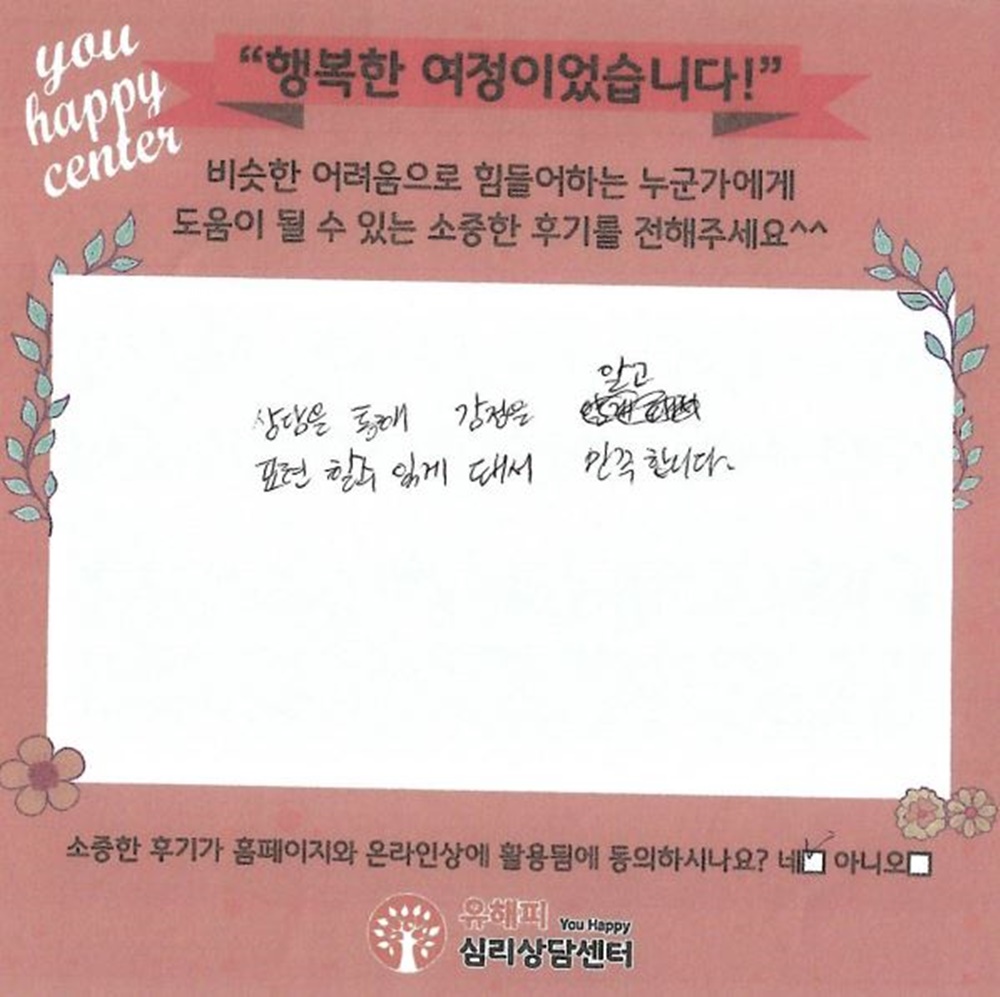 you
happy
center
“행복한 여정이었습니다!”
비슷한 어려움으로 힘들어하는 누군가에게
도움이 될 수 있는 소중한 후기를 전해주세요^^
알고
상담을 통해 감정을
표현 할수 있게 돼서 만족합니다.
소중한 후기가 홈페이지와 온라인상에 활용됨에 동의하시나요? 네 아니오
유해피 You Happy
심리상담센터